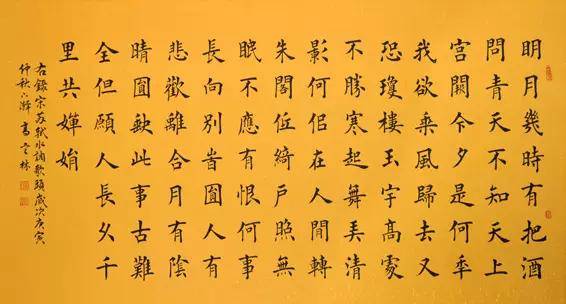 明月幾時有把酒
問青天不知天上
宮闕今夕是何秊
我欲乘風歸去又
恐瓊樓玉宇高處
不勝寒起舞弄清
影何似在人間轉
朱閣低綺戶照無
眠不應有恨何事
長向別旹圓人有
悲歡離合月有陰
晴圓缺此事古難
全但願人長久千
里共嬋娟
右錄宋蘇軾水調歌頭歲次庚寅
仲秋六 高 林